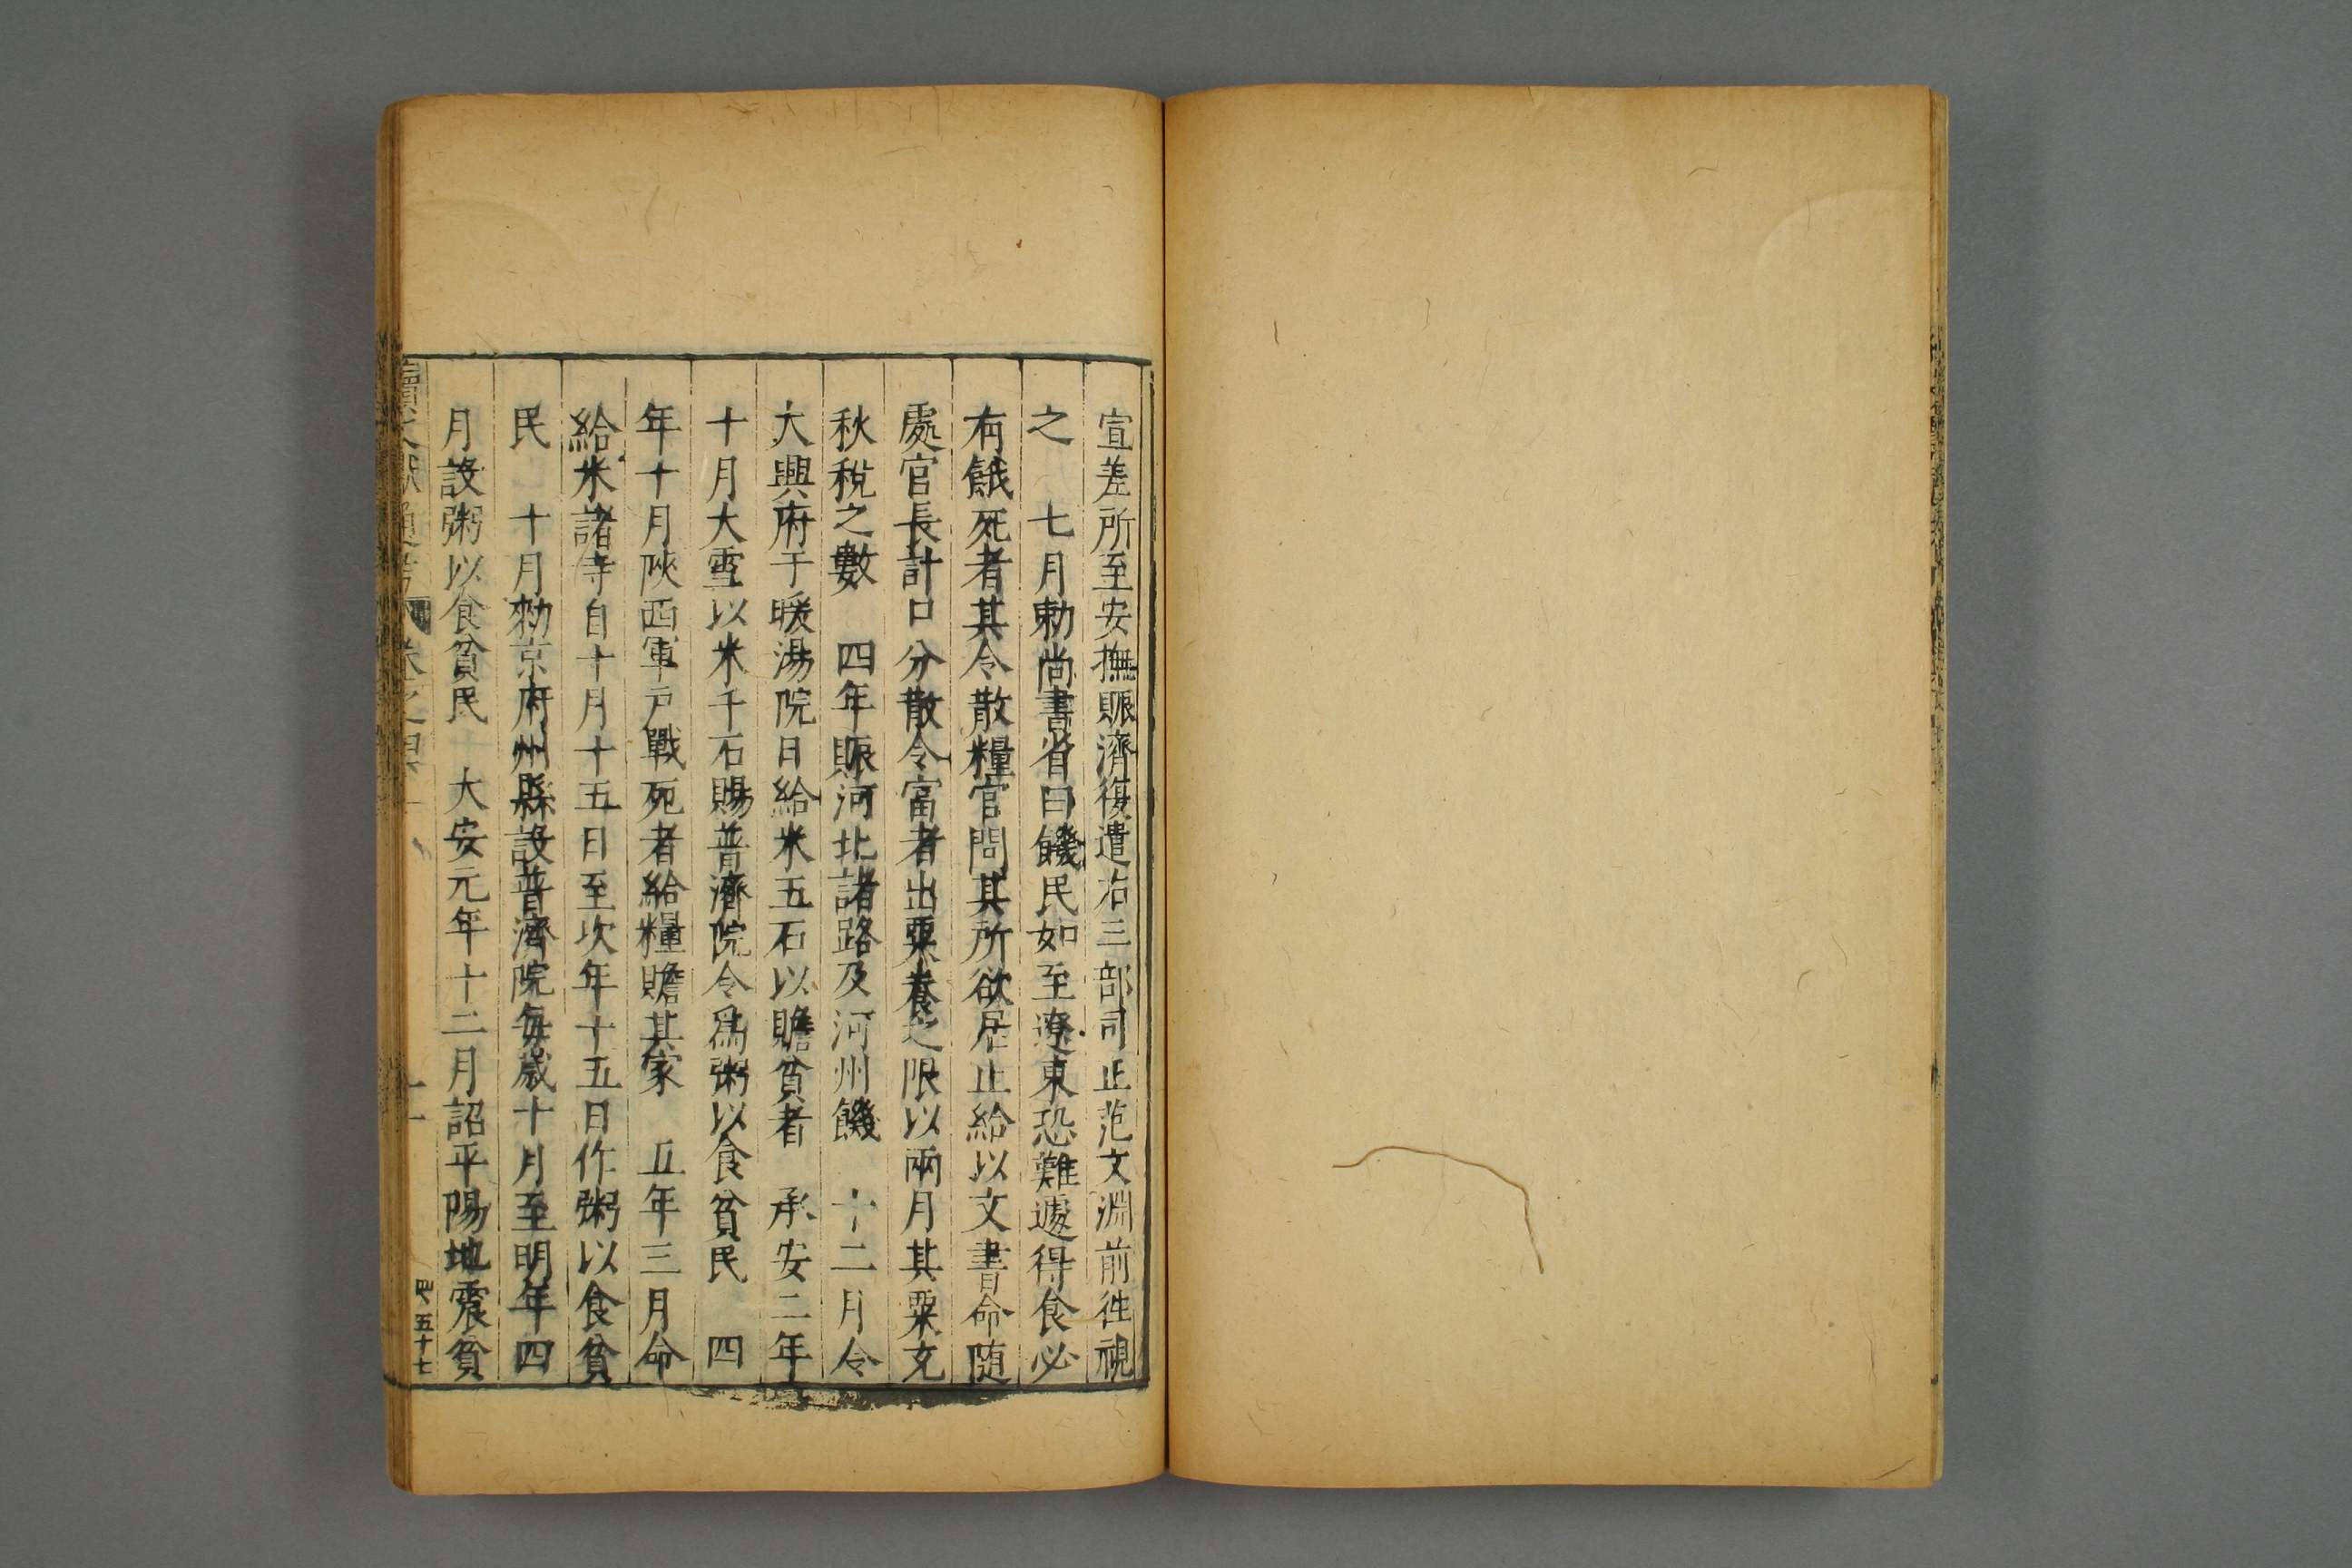 宣差所至安撫賑濟復遣右三部司正范文淵前徃視
之　七月勅尚書省曰饑民如至遼東恐難遽得食必
有餓死者其令散糧官問其所欲居止給以文書命随
處官長計口分散令富者出粟養之限以兩月其粟充
秋稅之數　四年賑河北諸路及河州饑　十二月令
大興府于暖湯院日給米五石以贍貧者　承安二年
十月大雪以米千石賜普濟院令爲粥以食貧民　四
年十月陜西軍戸戰死者給糧贍其家　五年三月命
給米諸寺自十月十五日至次年十五日作粥以食貧
民　十月勑京府州縣設普濟院每歲十月至明年四
月設粥以食貧民　大安元年十二月詔平陽地震貧
續文獻通考　卷之四十
五十七